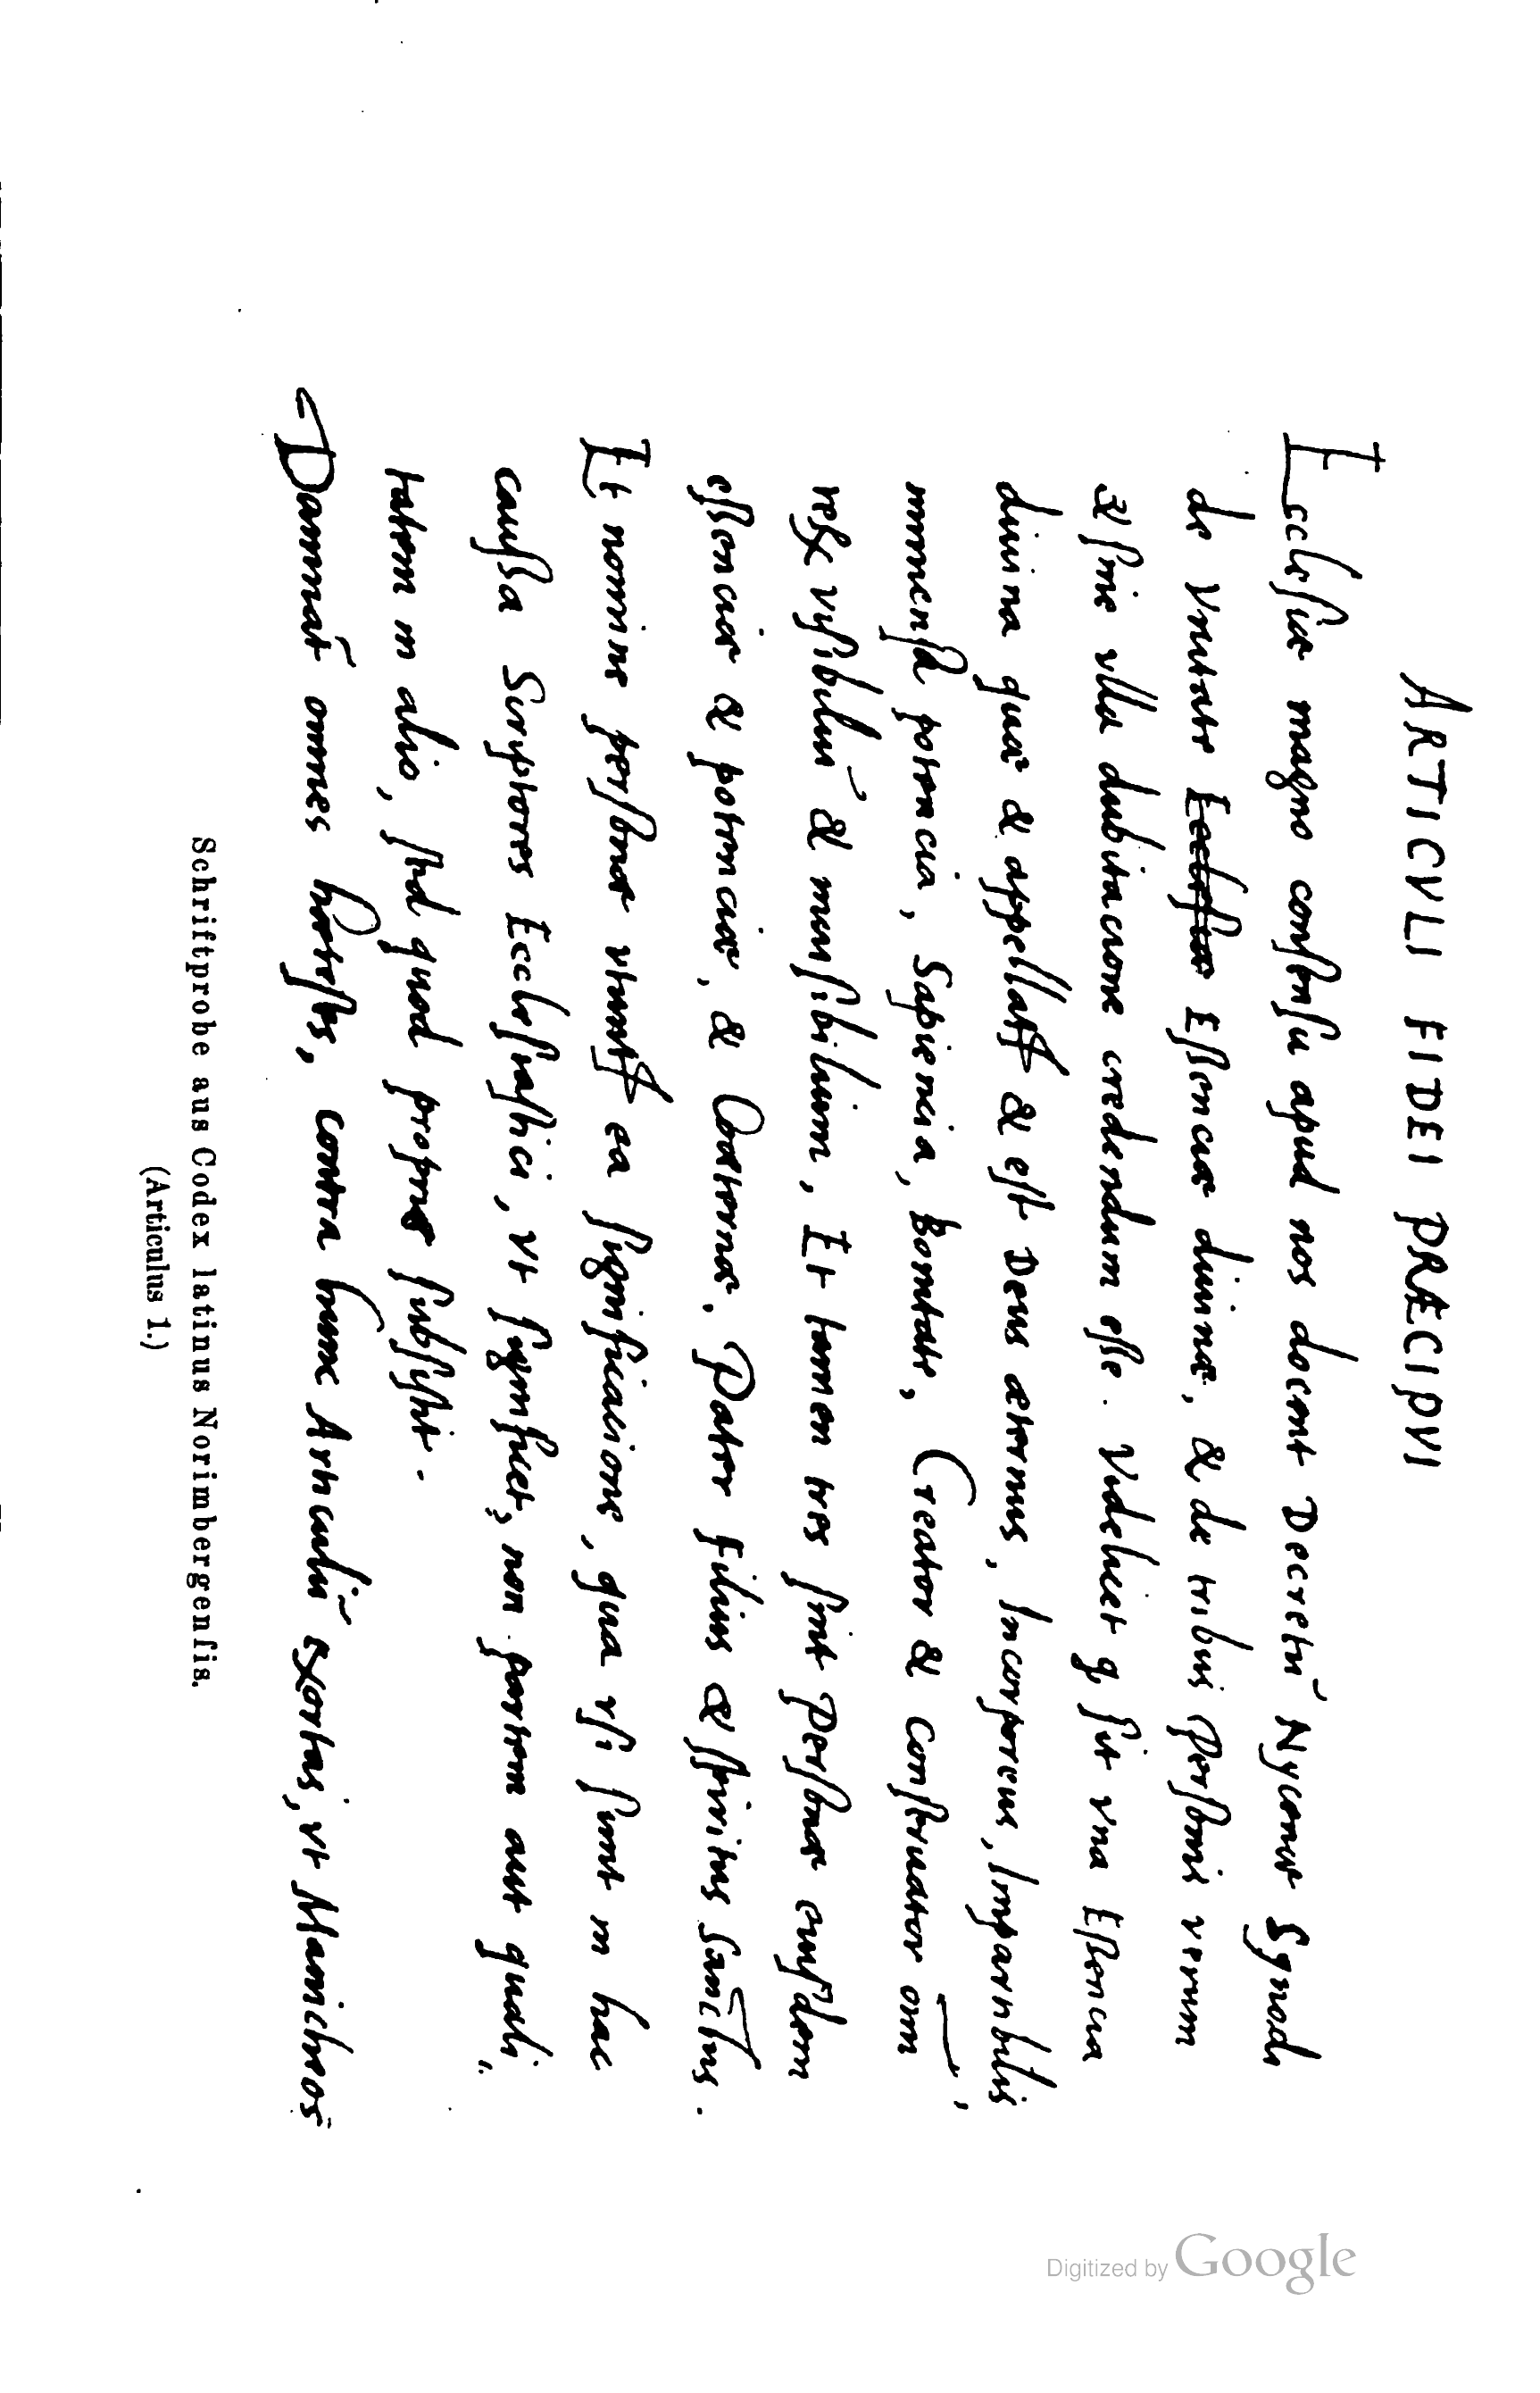 ARTICVLI FIDEI PRÆCIPVI
Eccleſiæ magno conſenſu apud nos docent Decretū Nycenæ Synodi
de Vnitate E̶c̶c̶l̶e̶ſ̶i̶æ̶ Eſſenciæ diuinæ, & de tribus perſonis verum
& ſine vlla dubitacione credendum eſſe. Videlicet qꝫ ſit vna Eſſencia
diuina quæ & appellatꝛ & eſt Deus æternus, Incorporeus, Impartibilis
immenſa potencia, Sapiencia, Bonitate, Creator & conſeruator om̄
reꝝ viſibiliū & inuiſibilium, Et tamen tres ſint perſonæ eiuſdem
eſſenciæ & potenciæ, & Coæternæ. Pater Filius & ſpiritus Sanctus.
Et nomine perſonæ vtuntꝛ ea ſignificacione, qua vſi ſunt in hac
cauſſa Scriptores Eccleſiaſtici, vt ſignificet, non partem aut quali⸗
tatem in alio, ſed quod proprie ſubſiſtit.
Damnāt omnes hæreſes, contra hunc Articulū exortas, vt Manicheos
Schriftprobe aus Codex latinus Norimbergenſis.
(Articulus 1.)
Digitized by Google